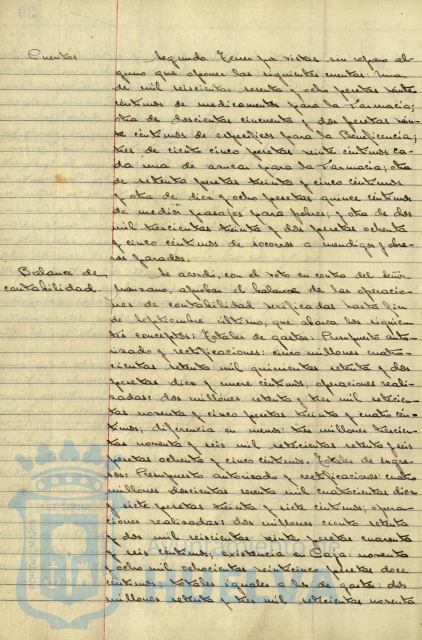 Cuentas
Segundo Tener por vistas sin reparo al-
guno que oponer las siguientes cuentas: Una
de mil seiscientas sesenta y ocho pesetas veinte
céntimos de medicamentos para la Farmacia;
otra de doscientas cincuenta y dos pesetas
céntimos de específicos para la Beneficencia;
tres de ciento cinco pesetas veinte céntimos ca-
da una de azucar para la Farmacia; otra
de setenta pesetas treinta y cinco céntimos
y otra de diez y ocho pesetas quince céntimos
de medios pasajes para pobres; y otra de dos
mil trescientas treinta y dos pesetas ochenta
y cinco céntimos de socorros a mendigos y obre-
ros parados.
Balance de
contabilidad.
Se acordó, con el voto en contra del señor
aprobar el balance de las operacio-
nes de contabilidad verificadas hasta fin
de Septiembre último, que abarca los siguien-
tes conceptos: Totales de gastos: Presupuesto auto-
rizado y rectificaciones: cinco millones cuatro-
cientas setenta mil quinientas setenta y dos
pesetas diez y nueve céntimos; operaciones reali-
zadas: dos millones setenta y tres mil setecien-
tas noventa y cinco pesetas treinta y cuatro cén-
timos; diferencia en menos: tres millones trescien-
tas noventa y seis mil setecientas setenta y seis
pesetas ochenta y cinco céntimos. Totales de ingre-
sos: Presupuesto autorizado y rectificaciones: cuatro
millones doscientas sesenta mil cuatrocientas diez
y siete pesetas treinta y siete céntimos; opera-
ciones realizadas: dos millones ciento setenta
y dos mil seiscientas veinte pesetas cuarenta
y seis céntimos; existencia en Caja: noventa
y ocho mil ochocientas veinticinco pesetas doce
céntimos; totales iguales a los de gastos: dos
millones setenta y tres mil setecientas noventa